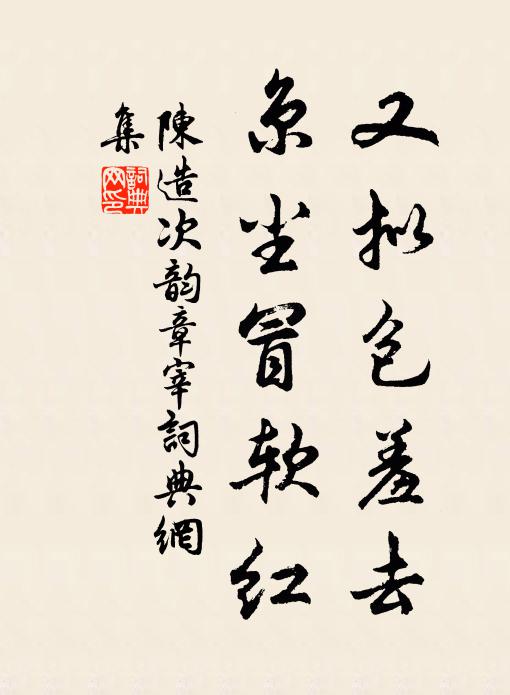 又拟包羞去
京尘冒软红
陳造次韵章宰詞典網
集
詞典
网印